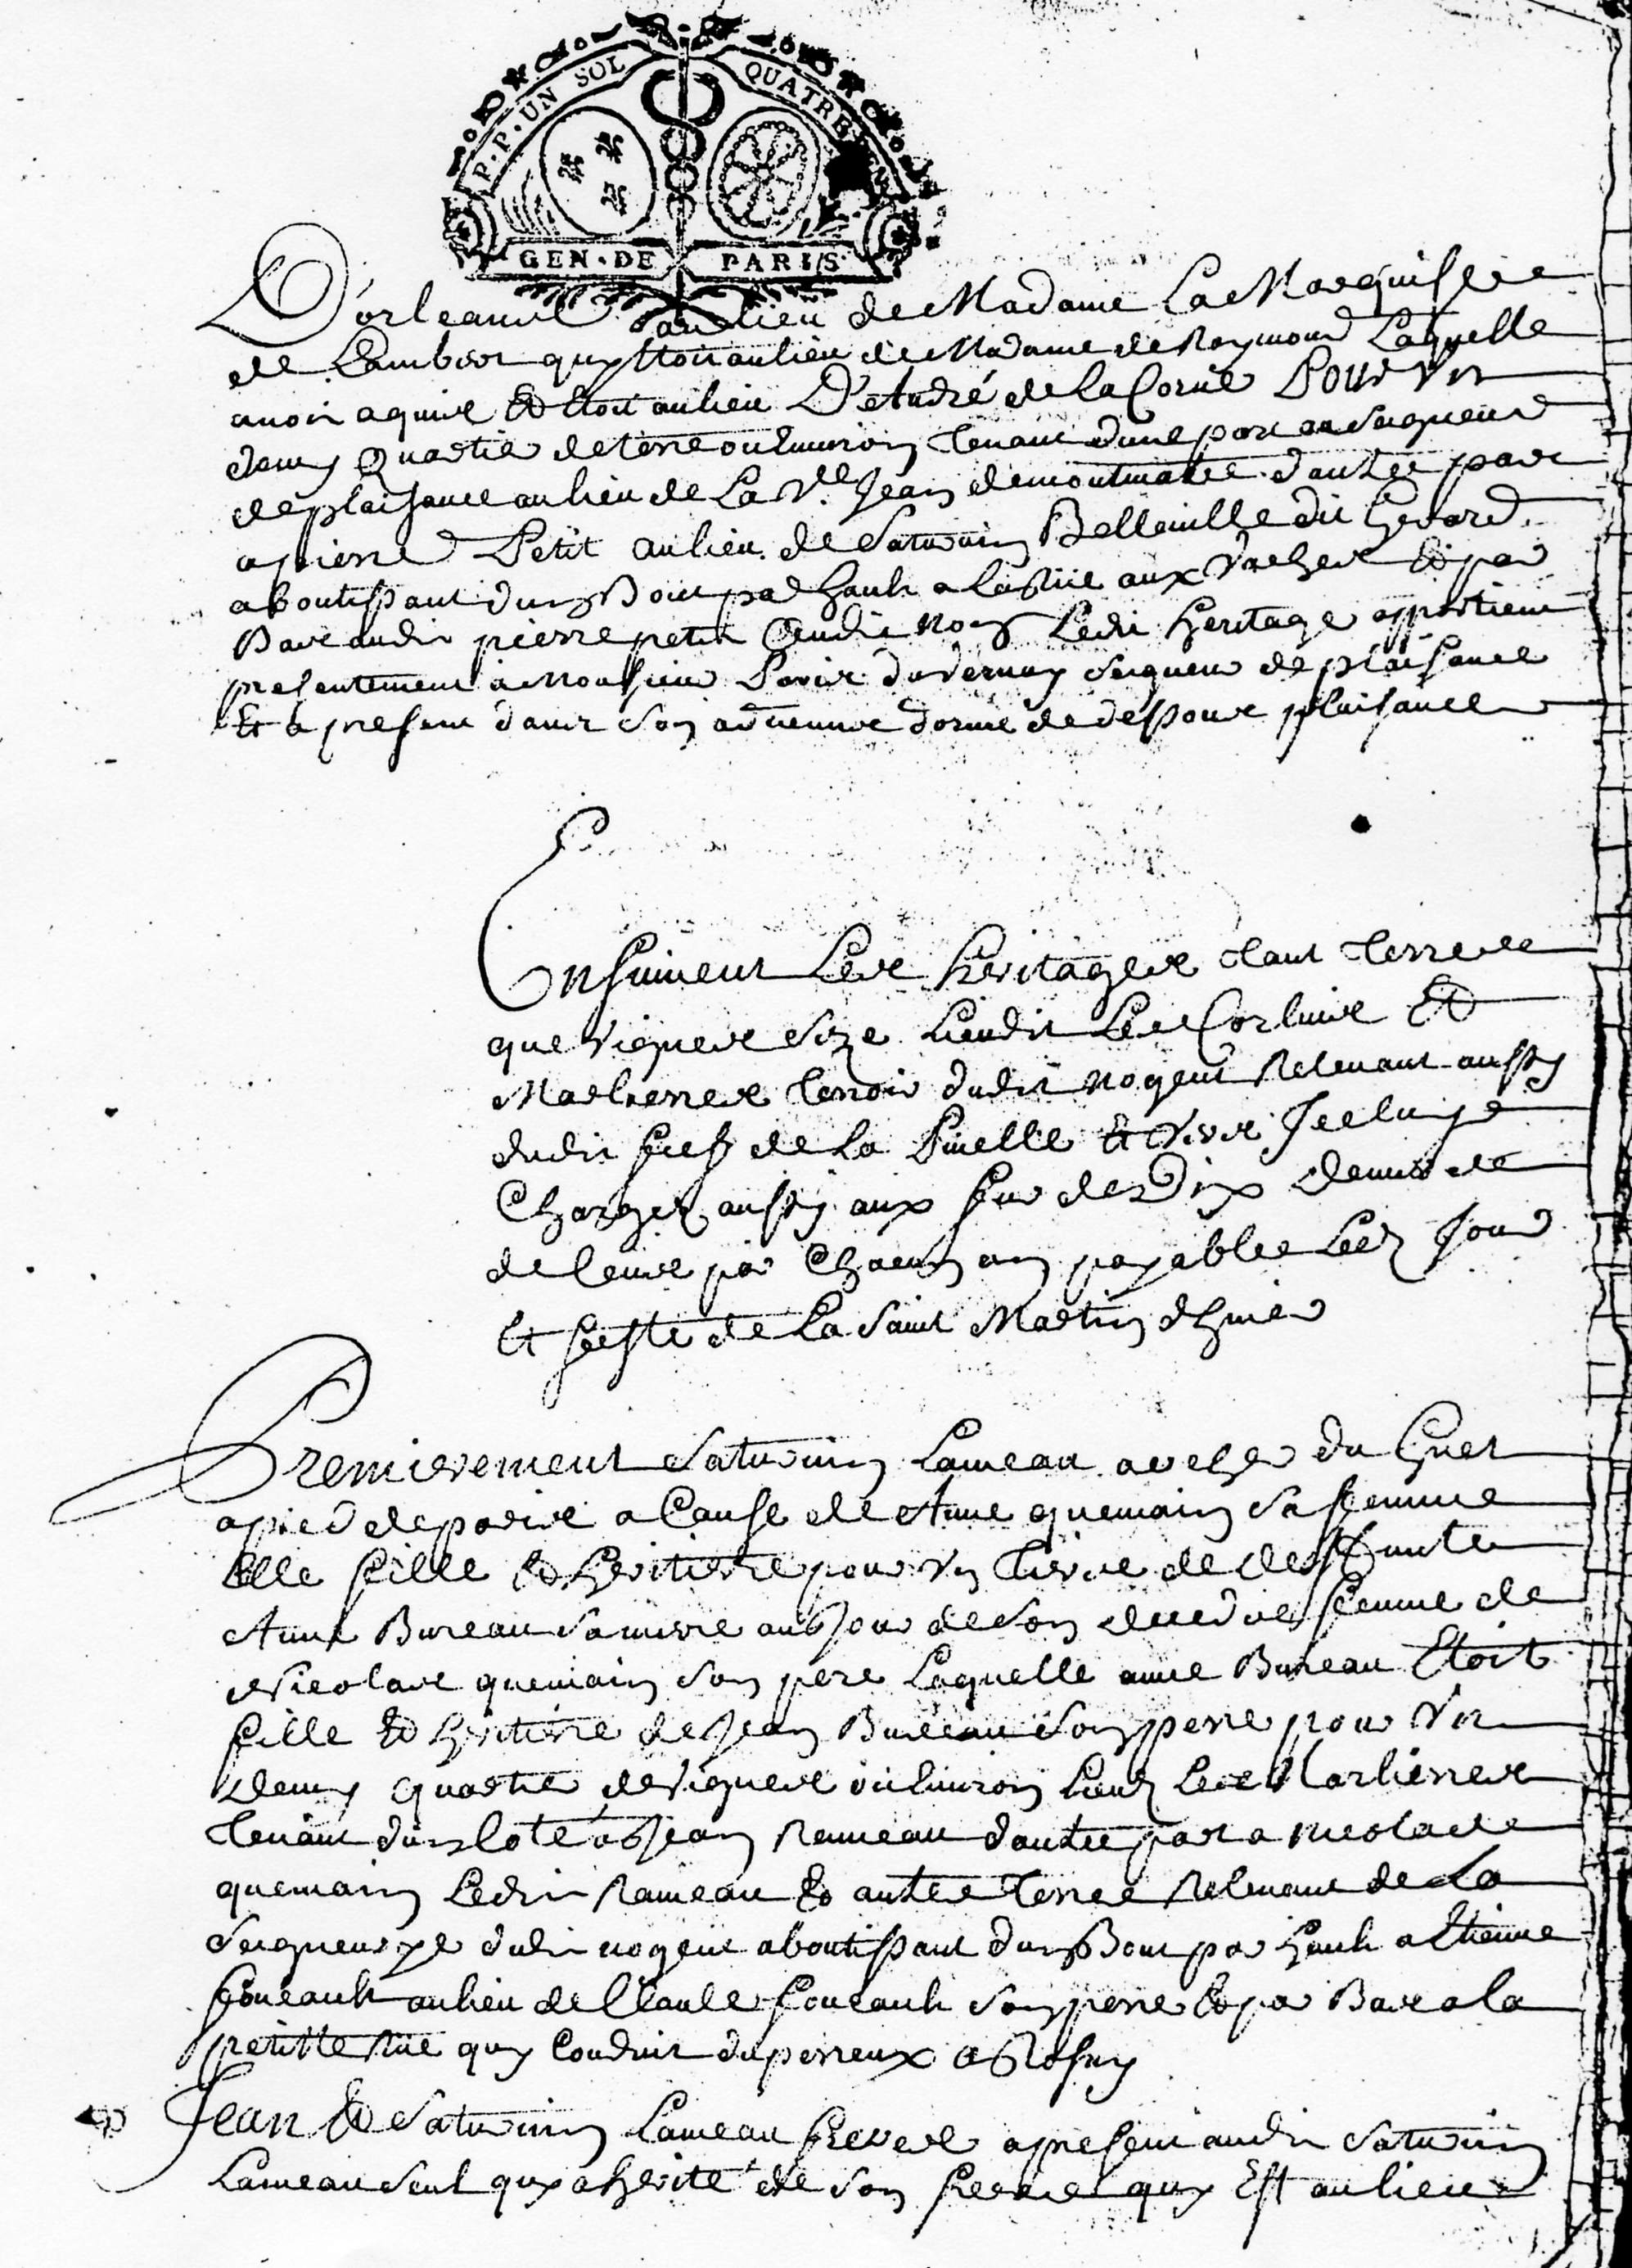 P.P. UN SOL QUATRE
GEN. DE PARIS
D'orleans au lieu de Madame La Marquise
de Lambert quy Etoit au lieu de Madame de Raymond Laquelle
avoit aquis Et Etoit au lieu D'André de la Corne Pour Vn
demy Quartie de terre ou Environ Tenant d'une part au seigneur
de plaisance au lieu de La Ve Jean demontmatre d'autre part
a pierre Petit au lieu de Saturnin Belleville dit
aboutissant d'un Bout par hault a la Rüe aux Vaches Et par
Bas audit pierre petit Ledit heritage appartient
presentement a Monsieur Paris duvernay seigneur de plaisance
Et a present dans son advenue dorme de dessous plaisance
Ensuivent Les heritages tant Terres
que Vignes size lieudit Les Et
Marlieres Terroir dudit nogent Relevant aussy
dudit fief de La Pinelle Et Vers Iceluy
Chargez aussy aux fur de Dix deniers
de Cens par Chacun an payable Led Jour
Et feste de La Saint Martin dhiver
Premierement Saturnin Lameau archer du Guet
a pied de paris a Cause de Anne quemain Sa femme
Elle fille Et Heritiere pour Vn Tiers de deffunte
Anne Bureau Sa mere au Jour de Son deceds femme de
Nicolas quemain Son pere Laquelle anne Bureau Etoit
fille Et heritiere de Jean Bureau Son pere pour Vn
Demy quartie de Vignes ou Environ Lieud Les Marlieres
Tenant d'un coté a Jean Rameau d'autre part a nicolas
quemain Ledit Rameau Et autre Terres Relevant de La
Seigneurye dudit nogent aboutissant d'un Bout par hault a Etienne
foucault au lieu de Claude foucault Son pere Et par Bas a la
petitte Rüe quy Conduit du perreux a Rosny
Jean Et Saturnin Lameau freres a present audit Saturnin
Lameau Seul quy a herité de Son frere quy Est au lieu